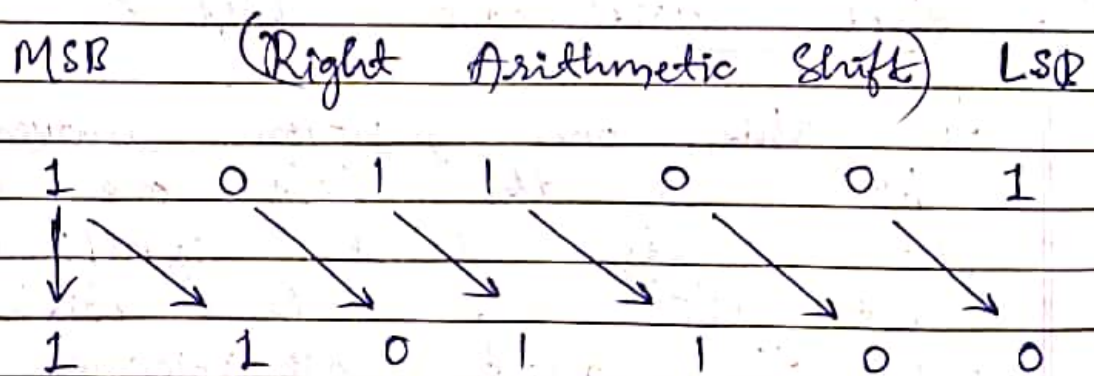 MSB (Right Arithmetic Shift) LSB
1 0 1 1 0 0 1
1 1 0 1 1 0 0